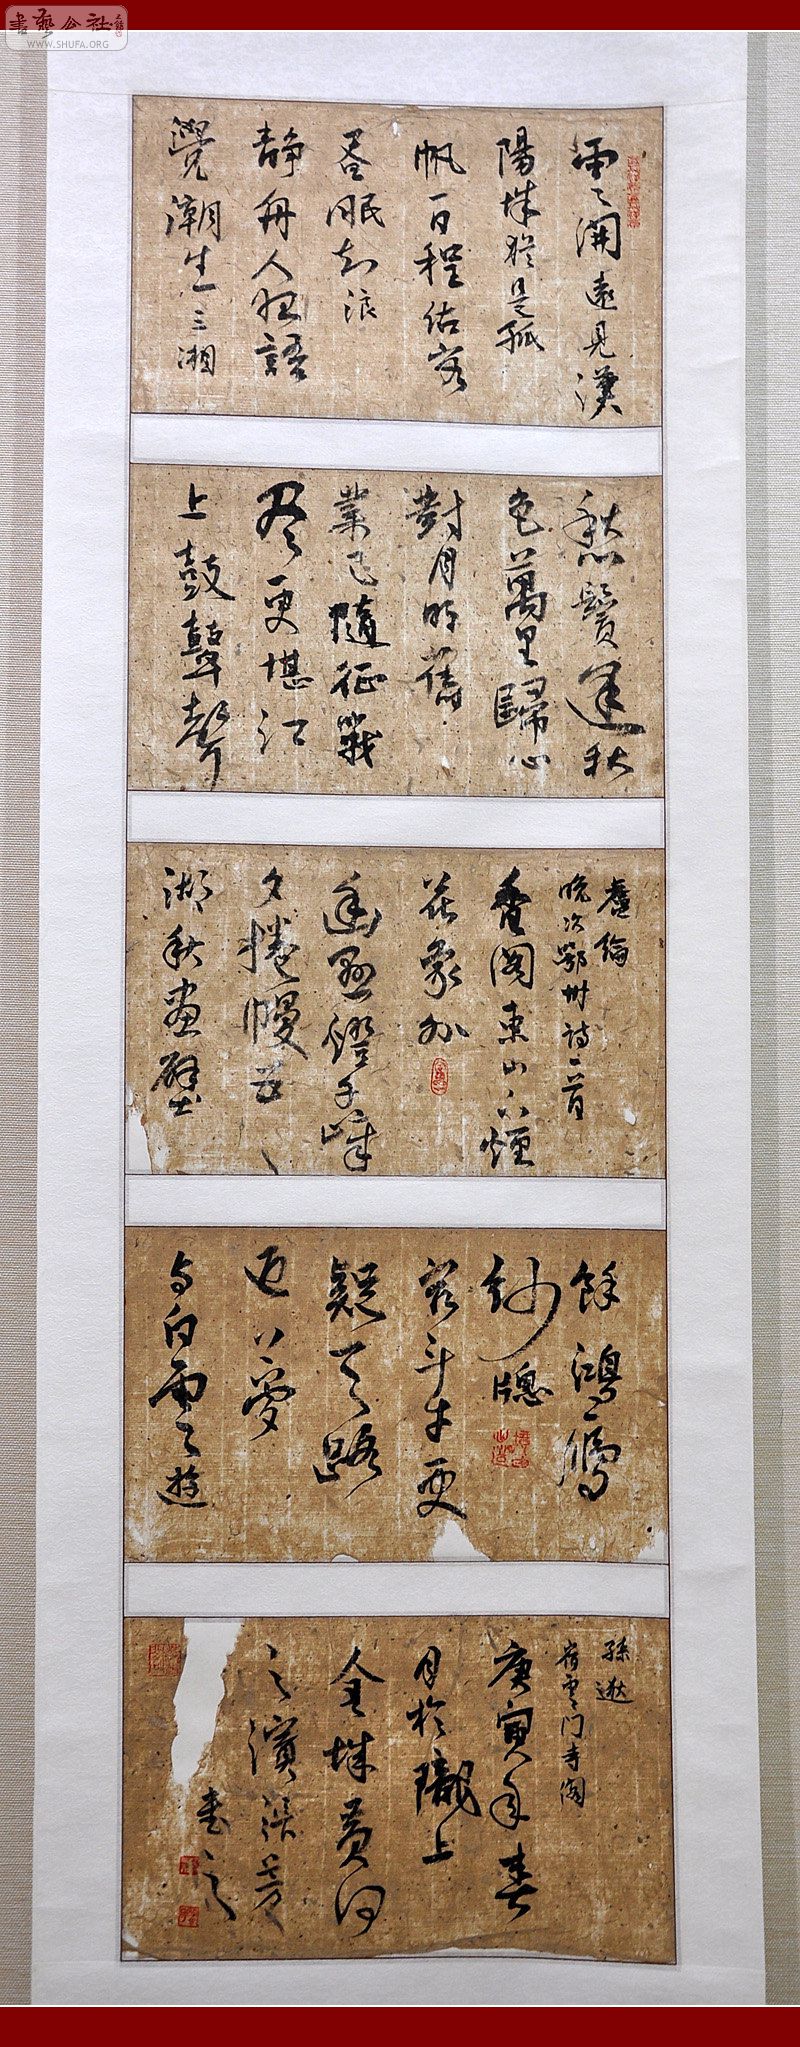 書藝公社
WWW.SHUFA.ORG
雲開遠見漢
陽城猶是孤
帆一日程估客
昼眠知浪
静舟人夜語
覺潮生三湘
愁鬢逢秋
色萬里歸心
對月明舊
業已隨征戰
尽更堪江
上鼓鼙聲
盧綸
晚次鄂州詩一首
香阁東山下煙
花象外
幽懸燈千嶂
夕捲幔五
湖秋畫壁
餘鴻雁
紗牕
宿斗牛更
疑天路
近夢
与白雲遊
孫逖
宿雲门寺阁
庚寅年春
月於隴上
金城黄河
之濱
書之